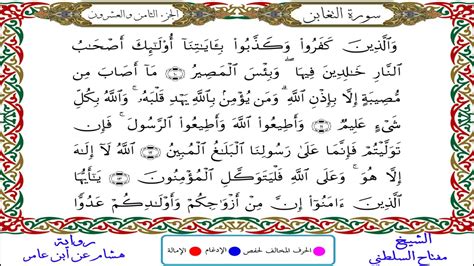 سورة التغابن
الجزء الثامن والعشرون
وَالَّذِينَ كَفَرُوا۟ وَكَذَّبُوا۟ بِـَٔايَٰتِنَآ أُو۟لَٰٓئِكَ أَصْحَٰبُ
النَّارِ خَٰلِدِينَ فِيهَا ۖ وَبِئْسَ الْمَصِيرُ ۝ مَآ أَصَابَ مِن
مُّصِيبَةٍ إِلَّا بِإِذْنِ اللَّهِ ۗ وَمَن يُؤْمِنۢ بِاللَّهِ يَهْدِ قَلْبَهُۥ ۚ وَاللَّهُ بِكُلِّ
شَىْءٍ عَلِيمٌ ۝ وَأَطِيعُوا۟ اللَّهَ وَأَطِيعُوا۟ الرَّسُولَ ۚ فَإِن
تَوَلَّيْتُمْ فَإِنَّمَا عَلَىٰ رَسُولِنَا الْبَلَٰغُ الْمُبِينُ ۝ اللَّهُ لَآ إِلَٰهَ
إِلَّا هُوَ ۚ وَعَلَى اللَّهِ فَلْيَتَوَكَّلِ الْمُؤْمِنُونَ ۝ يَٰٓأَيُّهَا
الَّذِينَ ءَامَنُوٓا۟ إِنَّ مِنْ أَزْوَٰجِكُمْ وَأَوْلَٰدِكُمْ عَدُوًّا
الشيخ
مفتاح السلطني
الحرف المخالف لحفص
الإدغام
الإمالة
رواية
هشام عن ابن عامر